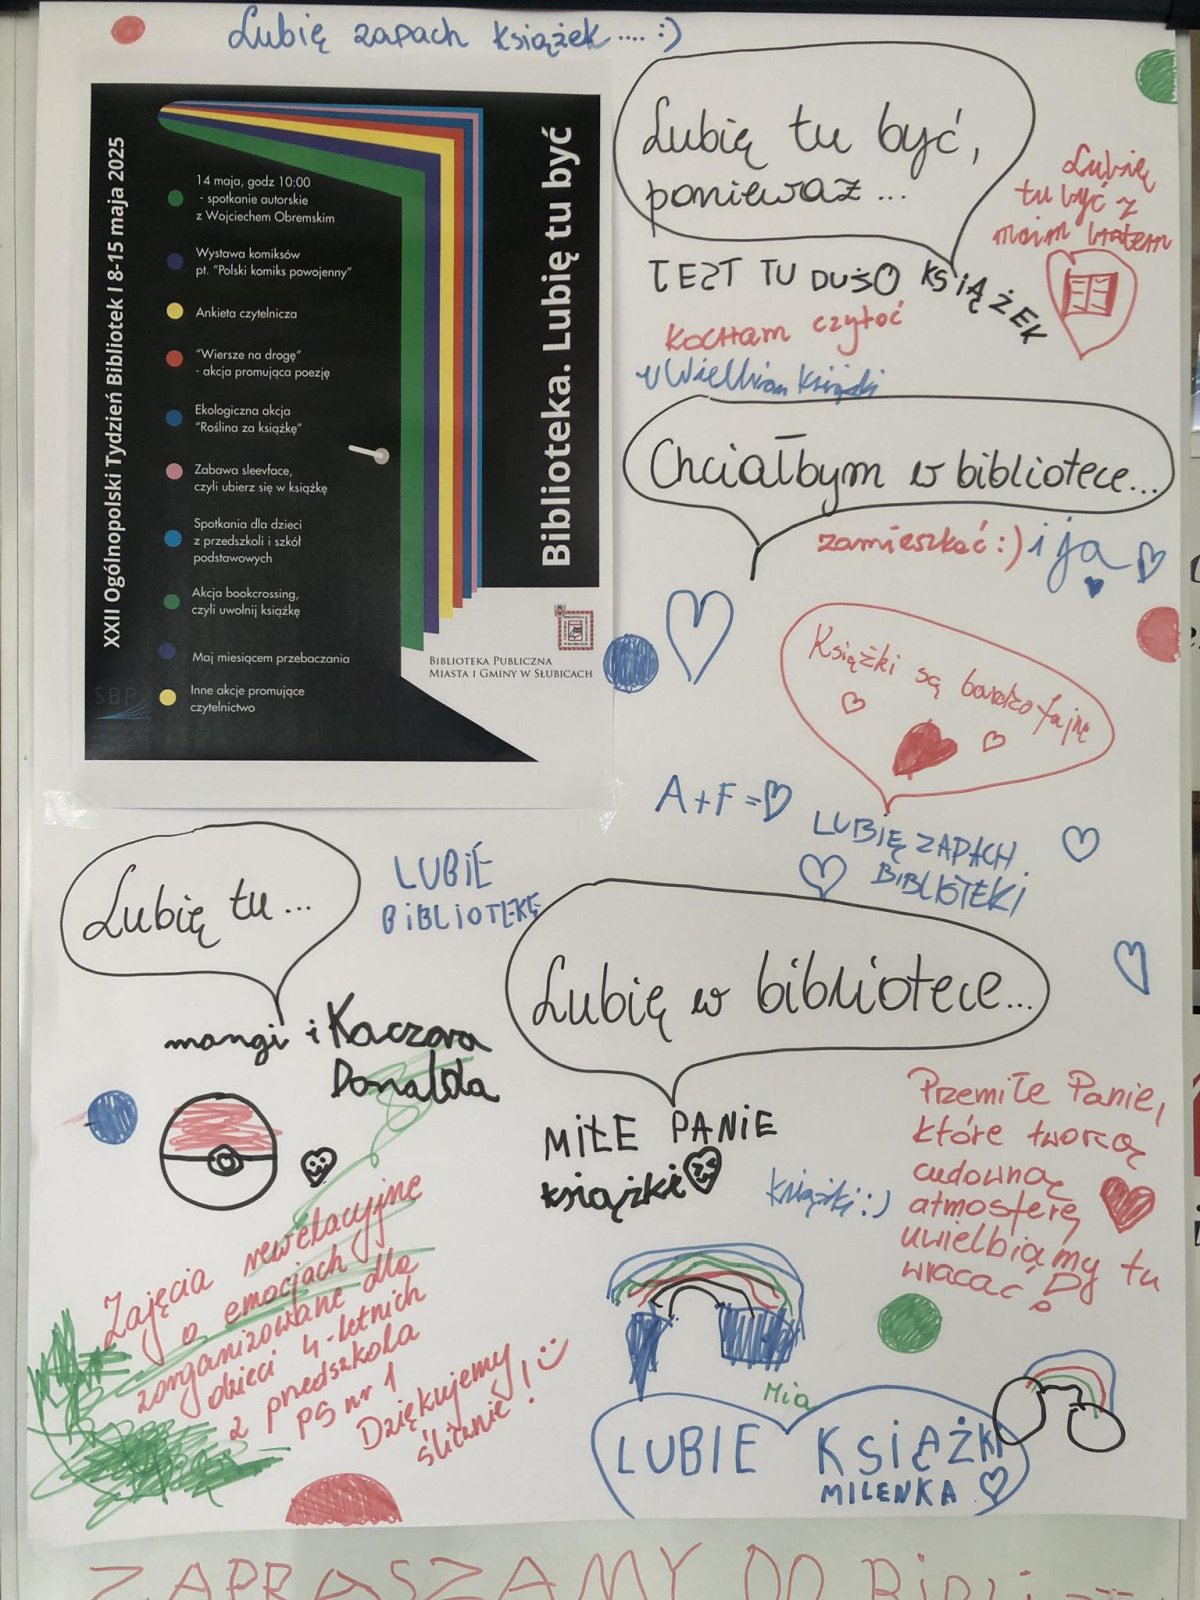 Lubię zapach książek.... :)
XXII Ogólnopolski Tydzień Bibliotek I 8-15 maja 2025
14 maja, godz 10:00
- spotkanie autorskie
z Wojciechem Obremskim
Wystawa komiksów
pt. "Polski komiks powojenny"
Ankieta czytelnicza
"Wiersze na drogę"
- akcja promująca poezję
Ekologiczna akcja
"Roślina za książkę"
Zabawa sleevface,
czyli ubierz się w książkę
Spotkania dla dzieci
z przedszkoli i szkół
podstawowych
Akcja bookcrossing,
czyli uwolnij książkę
Maj miesiącem przebaczania
Inne akcje promujące
czytelnictwo
SBP
Biblioteka. Lubię tu być
BIBLIOTEKA PUBLICZNA
MIASTA I GMINY W SŁUBICACH
Lubię tu być,
ponieważ...
Lubię
tu być z
moim bratem
JEST TU DUŻO KSIĄŻEK
KOCHAM czytać
uwielbiam książki
Chciałbym w bibliotece...
zamieszkać :) i ja
Książki są bardzo fajne
A+F=
LUBIĘ ZAPACH
BIBLIOTEKI
Lubię tu...
LUBIĘ
BIBLIOTEKĘ
mangi i Kaczora
Donalda
Lubię w bibliotece...
MIŁE PANIE
książki
książki :)
Przemiłe Panie,
które tworzą
cudowną
atmosferę,
uwielbiamy tu
wracać
Zajęcia rewelacyjne
o emocjach
zorganizowane dla
dzieci 4-letnich
z przedszkola
PS nr 1
Dziękujemy
ślicznie!
Mia
LUBIE KSIĄŻKI
MILENKA
ZAPRASZAMY DO BIBLI